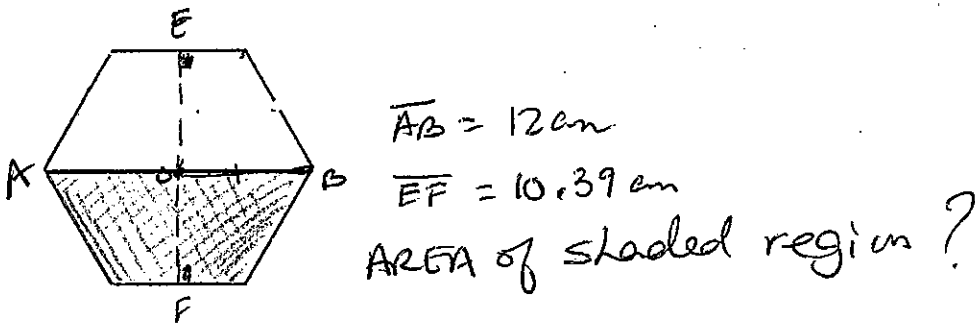 E
AB = 12cm
A
O
B
EF = 10.39 cm
AREA of shaded region?
F